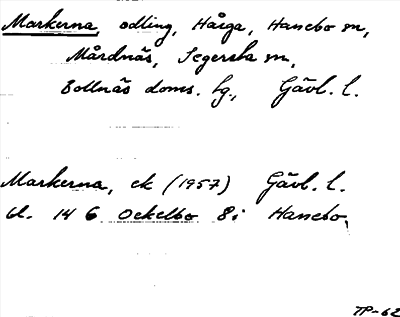 Markerna, odling, Håga, Hanebo sn,
Mårdnäs, Segersta sn,
Bollnäs doms. fg., Gävl. l.
Markerna, ek (1957) Gävl. l.
bl. 14 G Ockelbo 8i Hanebo.
TP-62